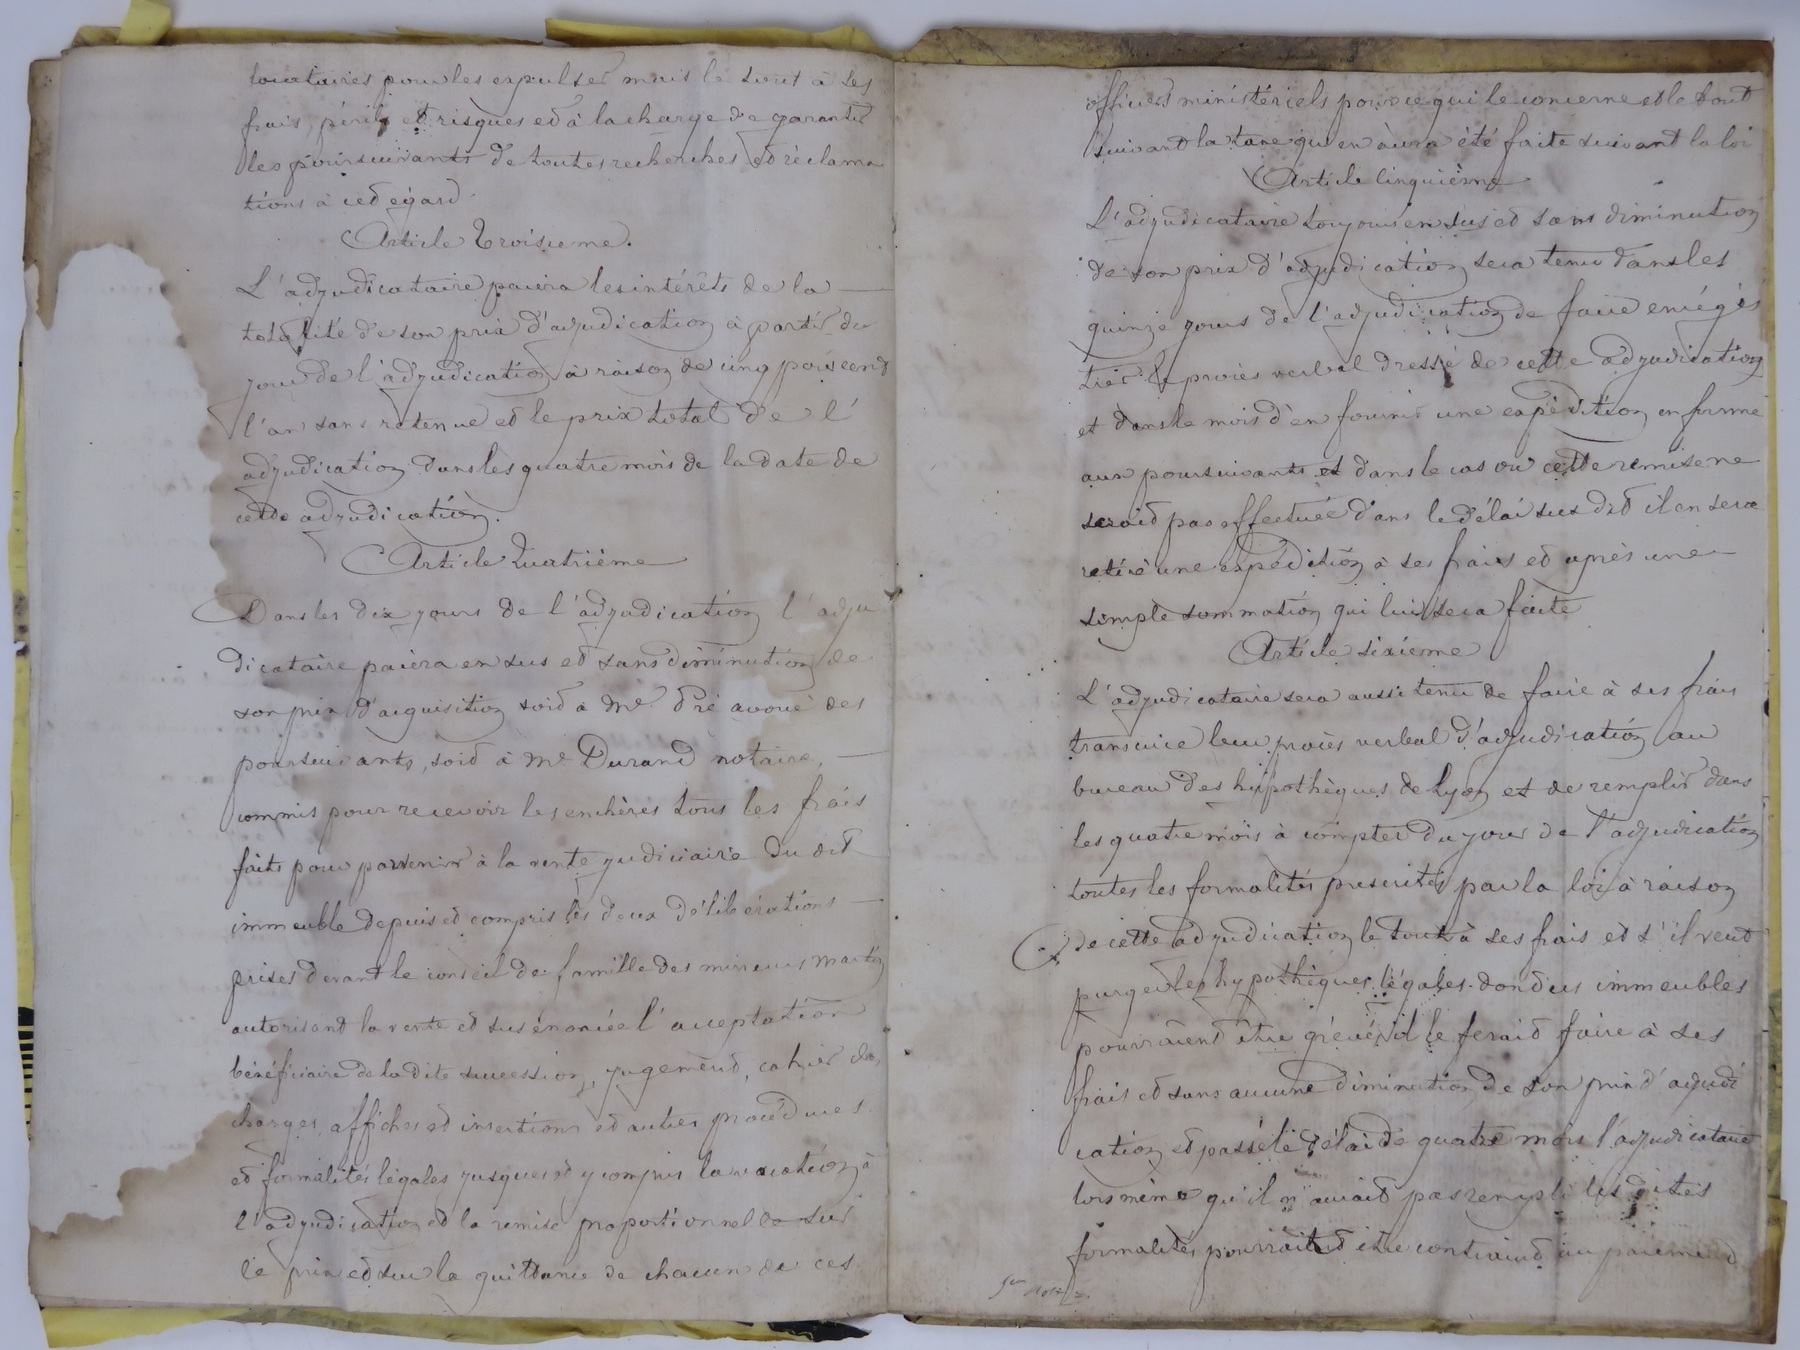 locataires pour les expulser mais le tout à ses
frais, périls et risques et à la charge de garantir
les poursuivants de toutes recherches et réclama
tions à cet égard.
Article Troisieme.
L'adjudicataire paiera les intérêts de la
totalité de son prix d'adjudication à partir du
jour de l'adjudication à raison de cinq pour cent
l'an sans retenue et le prix total de l'
adjudication dans les quatre mois de la date de
cette adjudication.
Article Quatrième
Dans les dix jours de l'adjudication l'adju
dicataire paiera en sus et sans diminution de
son prix d'acquisition soit à Me Pré avoué des
poursuivants, soit à Me Durand notaire,
commis pour recevoir les enchères tous les frais
faits pour parvenir à la vente judiciaire du dit
immeuble depuis et compris les deux délibérations
prises devant le conseil de famille des mineurs Martin
autorisant la vente et sus énoncée l'acceptation
bénéficiaire de la dite succession, jugement, cahier des
charges, affiches et insertions et autres procédures
et formalités légales jusques et y compris la vacation à
l'adjudication et la remise proportionnelle sur
le prix et sur la quittance de chacun de ces
officiers ministériels pour ce qui le concerne et le tout
suivant la taxe qu'en aura été faite suivant la loi
Article Cinquième
L'adjudicataire toujours en sus et sans diminution
de son prix d'adjudication sera tenu dans les
quinze jours de l'adjudication de faire enrégis
trer le procès verbal dressé de cette adjudication
et dans le mois d'en fournir une expédition en forme
aux poursuivants et dans le cas ou cette remise ne
serait pas effectuée dans le délai sus dit il en sera
retiré une expédition à ses frais et après une
simple sommation qui lui sera faite
Article sixieme
L'adjudicataire sera aussi tenu de faire à ses frais
transcrire leur procès verbal d'adjudication au
bureau des hypothèques de Lyon et de remplir dans
les quatre mois à compter du jour de l'adjudication
toutes les formalités prescrites par la loi à raison
de cette adjudication le tout à ses frais et s'il veut
purger les hypothèques légales dont ces immeubles
pourraient être grévés il le ferait faire à ses
frais et sans aucune diminution de son prix d'adjudi
cation et passé le délai de quatre mois l'adjudicataire
lors même qu'il n'aurait pas rempli les dites
formalités pourrait être contraint au paiement